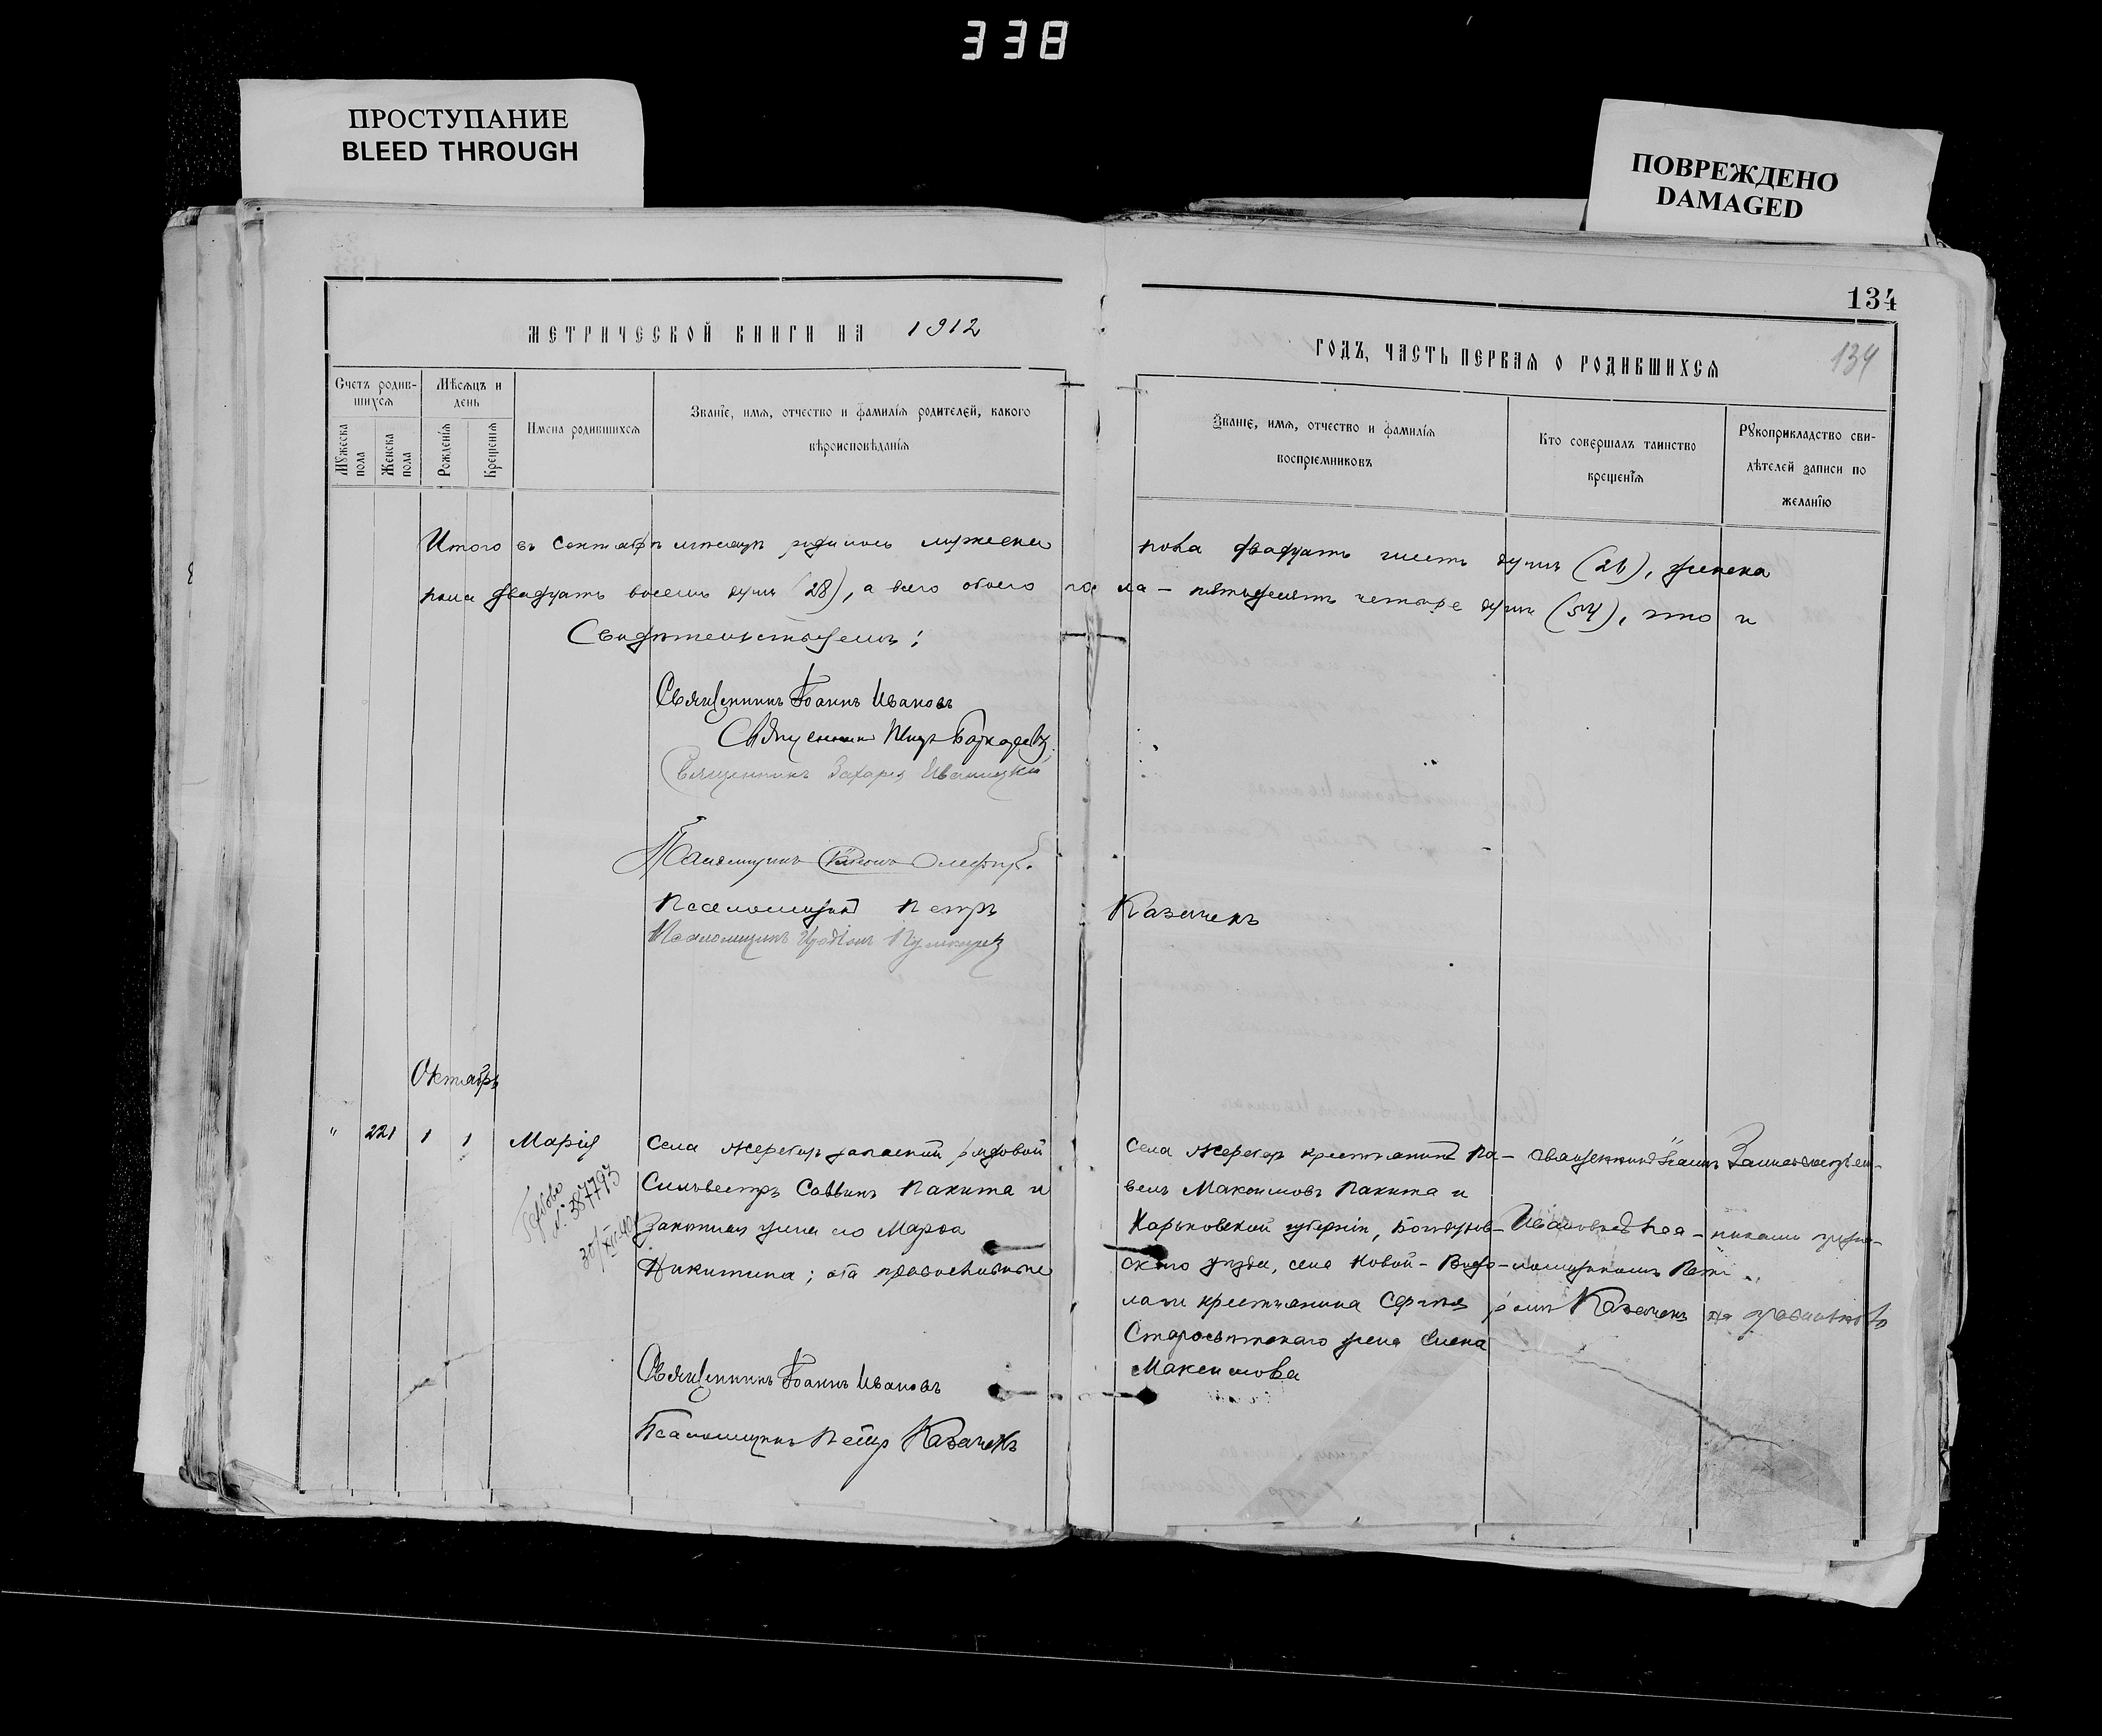 338
ПРОСТУПАНИЕ
BLEED THROUGH
ПОВРЕЖДЕНО
DAMAGED
134
134
МЕТРИЧЕСКОЙ КНИГИ НА 1912
ГОДЪ, ЧАСТЬ ПЕРВАЯ О РОДИВШИХСЯ
Счетъ родив-
шихся
Мѣсяцъ и
день
Мужеска
пола
Женска
пола
Рожденія
Крещенія
Имена родившихся
Званіе, имя, отчество и фамилія родителей, какого
вѣроисповѣданія
Званіе, имя, отчество и фамилія
воспріемниковъ
Кто совершалъ таинство
крещенія
Рукоприкладство сви-
дѣтелей записи по
желанію
Итого въ Сентябрѣ мѣсяцѣ родилось мужеска пола двадцать шесть душъ (26), женска
пола двадцать восемь душъ (28), а всего обоего пола – пятьдесятъ четыре душъ (54), что и
Свидѣтельствуемъ:
Священникъ Іоаннъ Ивановъ
Священникъ
Священникъ Захарія Иваницкій
Псаломщикъ
Псаломщикъ Петръ Казачекъ
Псаломщикъ
Октябрь
" 221 1 1 Марія
Села Жеребецъ запасный рядовой
Сильвестръ Саввинъ Пакита и
законная жена его Марѳа
Никитина; оба православные
№ 387793
30/XII-40
Села Жеребецъ крестьянинъ Па-
велъ Максимовъ Пакита и
Харьковской губерніи,
скаго уѣзда, села Новой-Водо-
лаги крестьянина Сергѣя
жена Елена
Максимова
Священникъ Іоаннъ
Ивановъ съ Пса-
ломщикомъ Пет-
ромъ Казачекъ
Священникъ Іоаннъ Ивановъ
Псаломщикъ Петръ Казачекъ